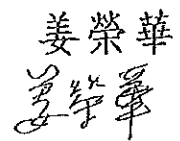 姜榮華
姜榮華